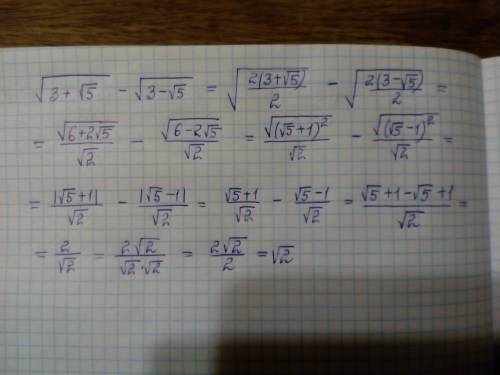 √(3 + √5) - √(3 - √5) = √(2(3+√5)/2) - √(2(3-√5)/2) =
= √(6+2√5)/√2 - √(6-2√5)/√2 = √((√5+1)²)/√2 - √((√5-1)²)/√2 =
= |√5+1|/√2 - |√5-1|/√2 = (√5+1)/√2 - (√5-1)/√2 = (√5+1-√5+1)/√2 =
= 2/√2 = 2√2/(√2·√2) = 2√2/2 = √2